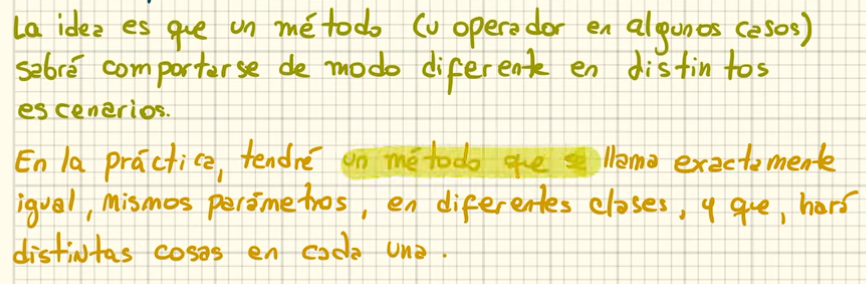 La idea es que un método (u operador en algunos casos)
sabrá comportarse de modo diferente en distintos
escenarios.
En la práctica, tendré un método que se llama exactamente
igual, mismos parámetros, en diferentes clases, y que, hará
distintas cosas en cada una.